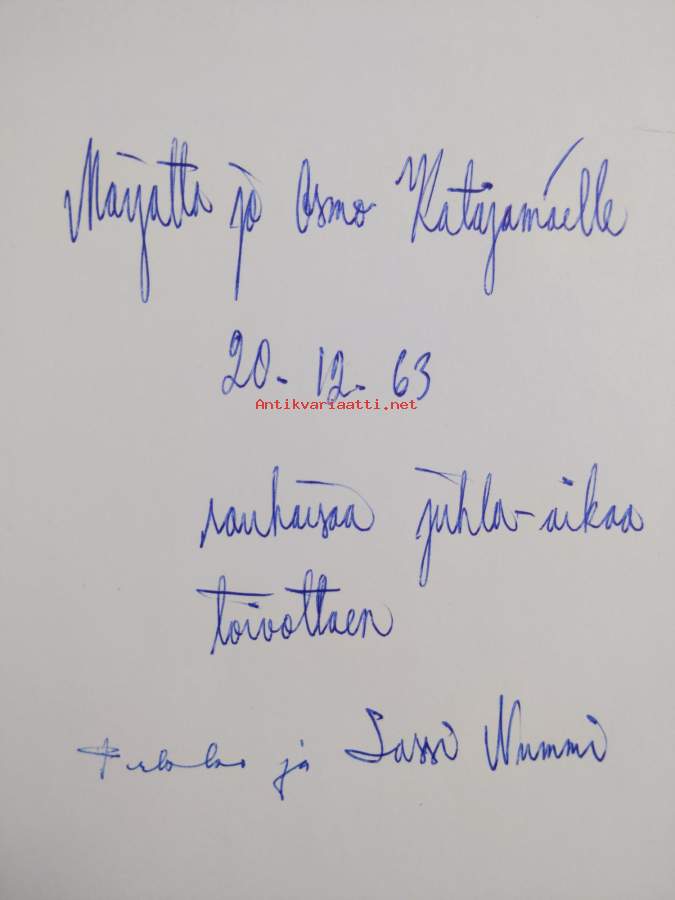 Marjatta ja Osmo Katajamäelle
20-12-63
Antikvariaatti.net
rauhaisaa juhla-aikaa
toivottaen
ja Lassi Nummi